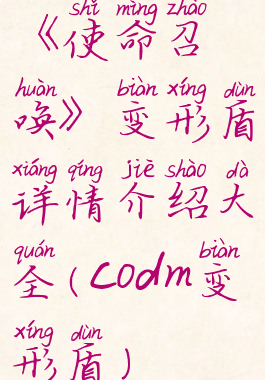 shǐ mìng zhào
《使命召
huàn biàn xíng dùn
唤》 变形盾
xiáng qíng jiè shào dà
详情介绍大
quán biàn
全（codm变
xíng dùn
形盾）